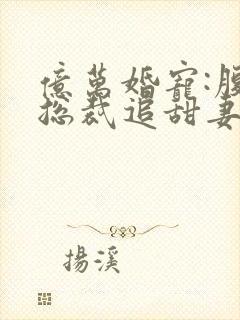 億萬婚寵:腹
總裁追甜妻
揚溪